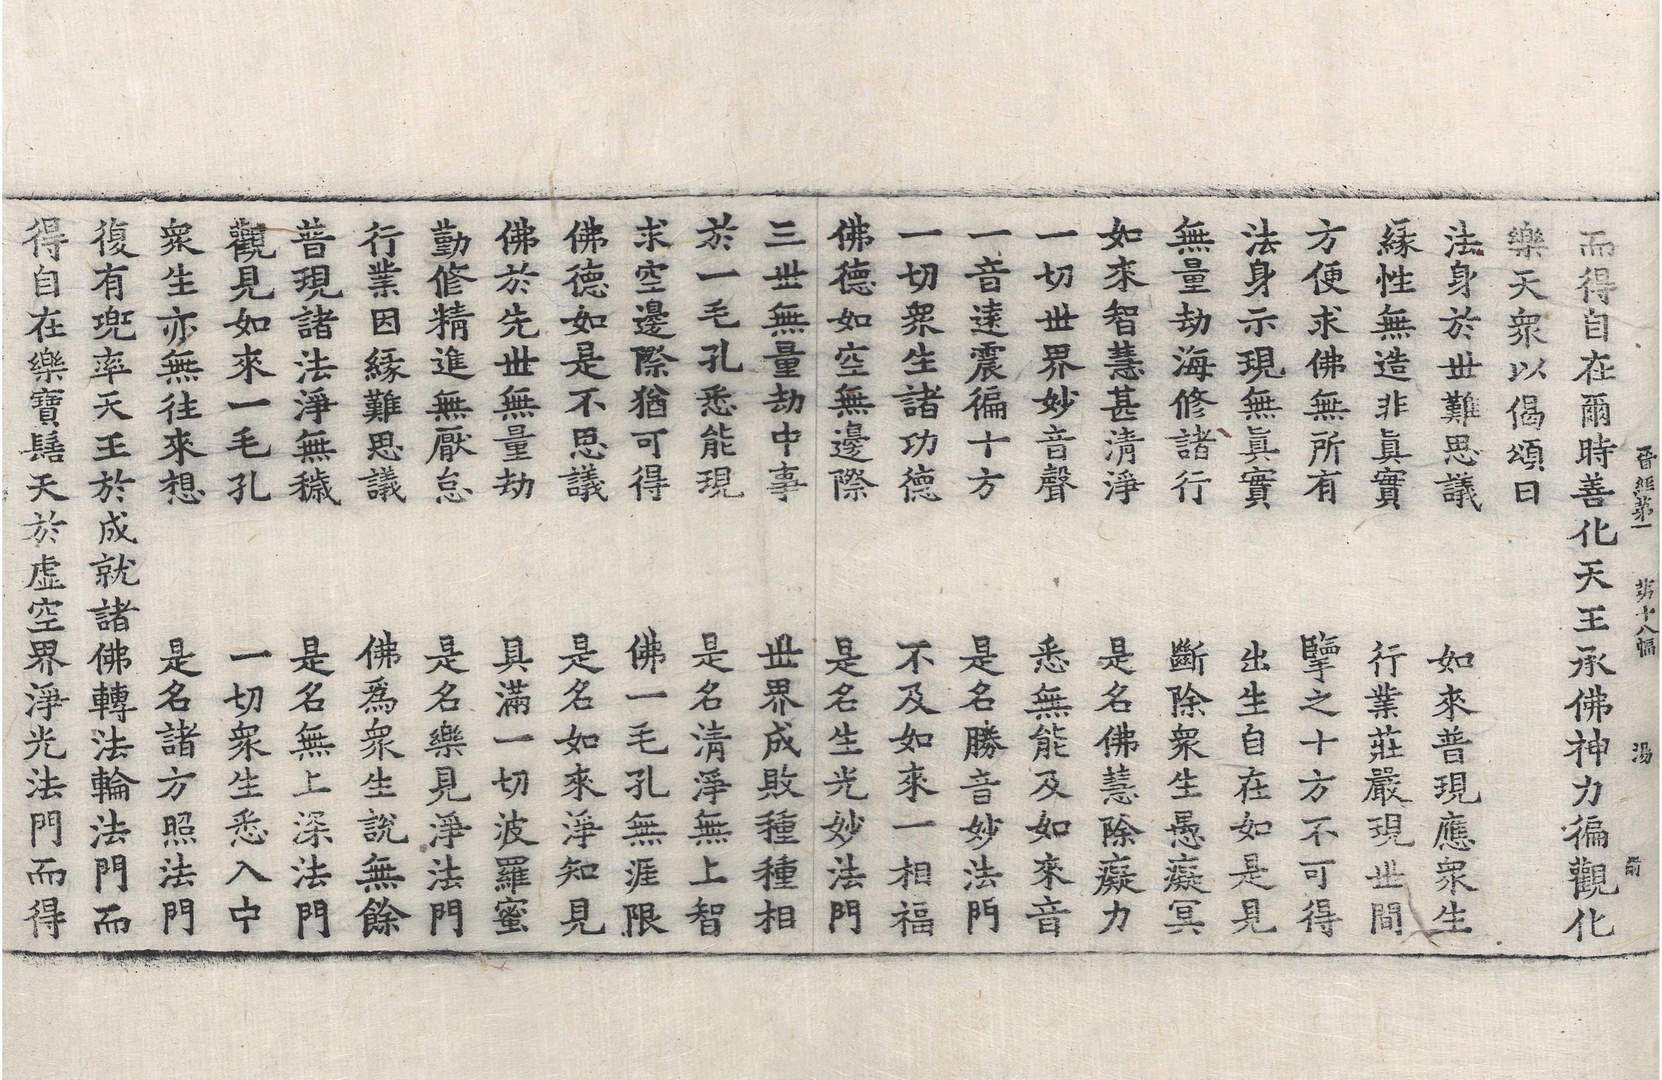 晉經第一 第十八幅 湯 前
而得自在爾時善化天王承佛神力徧觀化
樂天衆以偈頌曰
法身於世難思議 如來普現應衆生
緣性無造非眞實 行業莊嚴現世間
方便求佛無所有 擥之十方不可得
法身示現無眞實 出生自在如是見
無量劫海修諸行 斷除衆生愚癡冥
如來智慧甚清淨 是名佛慧除癡力
一切世界妙音聲 悉無能及如來音
一音遠震徧十方 是名勝音妙法門
一切衆生諸功德 不及如來一相福
佛德如空無邊際 是名生光妙法門
三世無量劫中事 世界成敗種種相
於一毛孔悉能現 是名清淨無上智
求空邊際猶可得 佛一毛孔無涯限
佛德如是不思議 是名如來淨知見
佛於先世無量劫 具滿一切波羅蜜
勤修精進無厭怠 是名樂見淨法門
行業因緣難思議 佛爲衆生說無餘
普現諸法淨無穢 是名無上深法門
觀見如來一毛孔 一切衆生悉入中
衆生亦無往來想 是名諸方照法門
復有兜率天王於成就諸佛轉法輪法門而
得自在樂寶髻天於虛空界淨光法門而得